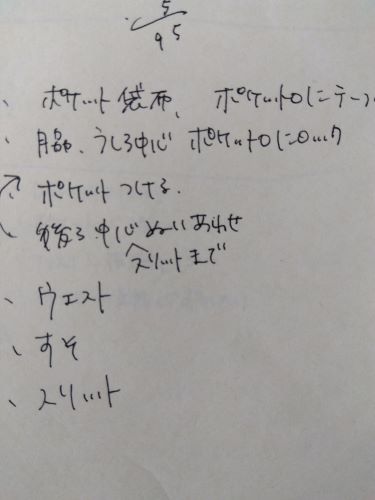 5
95
、ポケット袋布、ポケット口にテープ
、脇、うしろ中心 ポケット口にロック
↗ ポケットつける.
、後ろ中心ぬいあわせ
スリットまで
、ウエスト
、すそ
、スリット